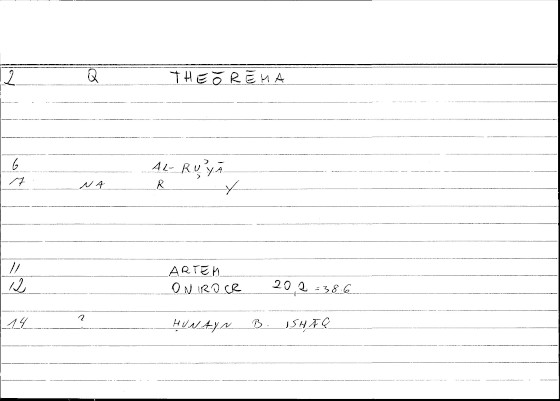 2 Q THEŌRĒMA
6 AL-RUʾYĀ
7 NA R Y
11 ARTEM
12 ONIROCR 20,2 = 386
14 ? ḤUNAYN B. ISḤĀQ